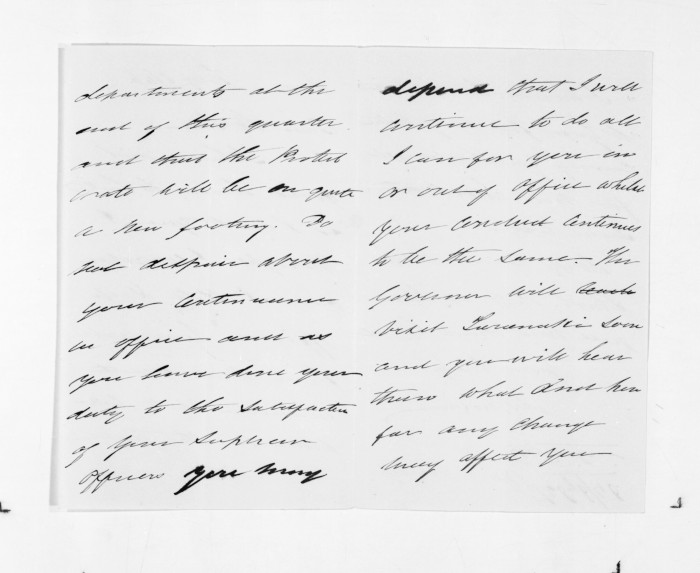 departments at the
end of this quarter
and that the Protect
orate will be on quite
a new footing. Do
not despair about
your continuance
in office and as
you have done your
duty to the satisfaction
of your Superior
Officers you may
depend that I will
continue to do all
I can for you in
or out of office whilst
your conduct continues
to be the same. The
Governor will
visit Taranaki soon
and you will hear
then what
far any change
may affect you